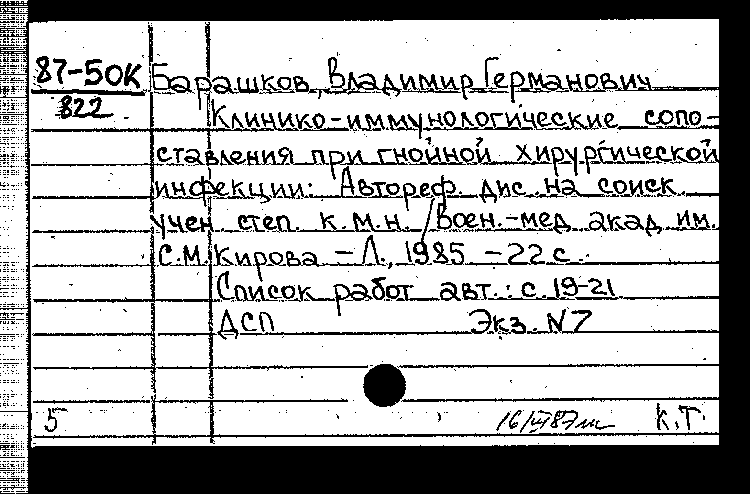 87-50К
822
Барашков, Владимир Германович
Клинико-иммунологические сопо-
ставления при гнойной хирургической
инфекции: Автореф. дис. на соиск.
учен. степ. к.м.н. / Воен.-мед. акад. им.
С.М. Кирова - Л., 1985 - 22 с.
Список работ авт.: с. 19-21
ДСП Экз. N7
5 К.Т.